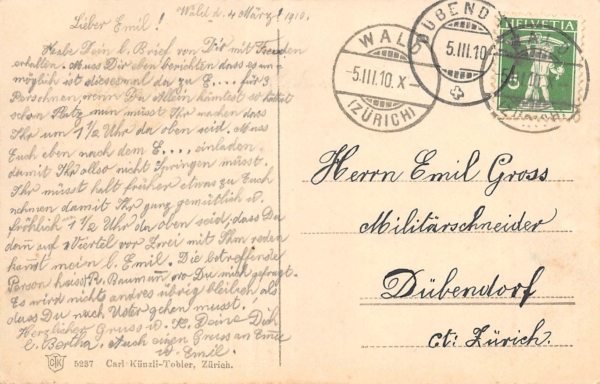 Wald d. 4 März 1910.
Lieber Emil!
Habe Dein l. Brief von Dir mit Freuden
erhalten. Muss Dir eben berichten dass es un-
möglich ist diesesmal da zu E.... für 3
Persohnen, wenn Du allein kämtest so hättest
schon Platz nun müsst Ihr machen dass
Ihr um 1 1/2 Uhr da oben seid. Muss
Euch eben nach dem E.... einladen.
damit Ihr also nicht springen müsst.
Ihr müsst halt früher etwas zu Euch
nehmen damit Ihr ganz gemeitlich u.
fröhlich 1 1/2 Uhr da oben seid, dass Du
dann auf Viertel vor Zwei mit Ihm reden
kannst mein l. Emil. Die betreffende
Person heisst R. Baumann wo Du mich gefragt.
Es wird nichts andres übrig bleiben als
dass Du nach Uster gehen musst!
Herzlicher Gruss u. K. Deine Dich
l. Bertha. Auch einen Gruss an
u. Emil.
WALD
-5.III.10.X-
(ZÜRICH)
DÜBENDORF
5.III.10
HELVETIA
5
Herrn Emil Gross
Militärschneider
Dübendorf
ct. Zürich.
CKT 5237 Carl Künzli-Tobler, Zürich.